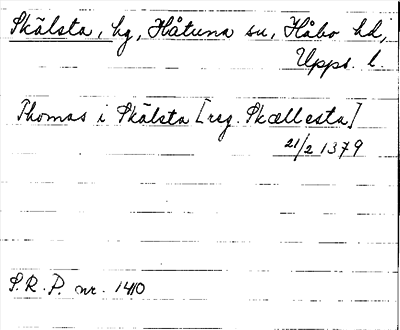 Skälsta, hg, Håtuna sn, Håbo hd,
Upps. l.
Thomas i Skälsta [reg. Skællesta]
21/2 1379
S.R.P. nr. 1410